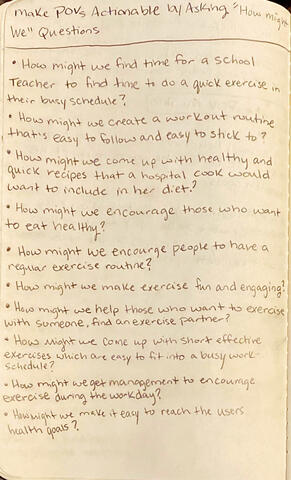 Make POVs Actionable by Asking "How might
We" Questions
• How might we find time for a school
Teacher to find time to do a quick exercise in
their busy schedule?
• How might we create a workout routine
that's easy to follow and easy to stick to?
• How might we come up with healthy and
quick recipes that a hospital cook would
want to include in her diet?
• How might we encourage those who want
to eat healthy?
• How might we encourge people to have a
regular exercise routine?
• How might we make exercise fun and engaging?
• How might we help those who want to exercise
with someone, find an exercise partner?
• How might we come up with short effective
exercises which are easy to fit into a busy work-
schedule?
• How might we get management to encourage
exercise during the workday?
• How might we make it easy to reach the users
health goals?